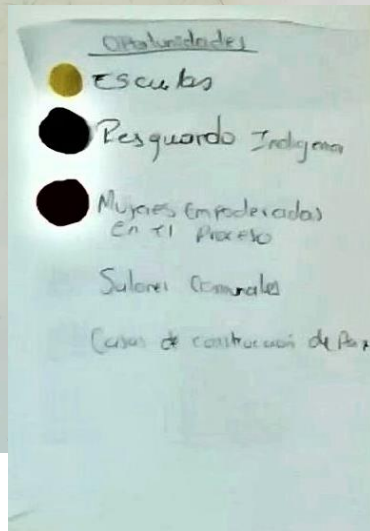 Oportunidades
Escuelas
Resguardo Indigena
Mujeres Empoderadas
En el Proceso
Salones Comunales
Casas de construcción de Paz